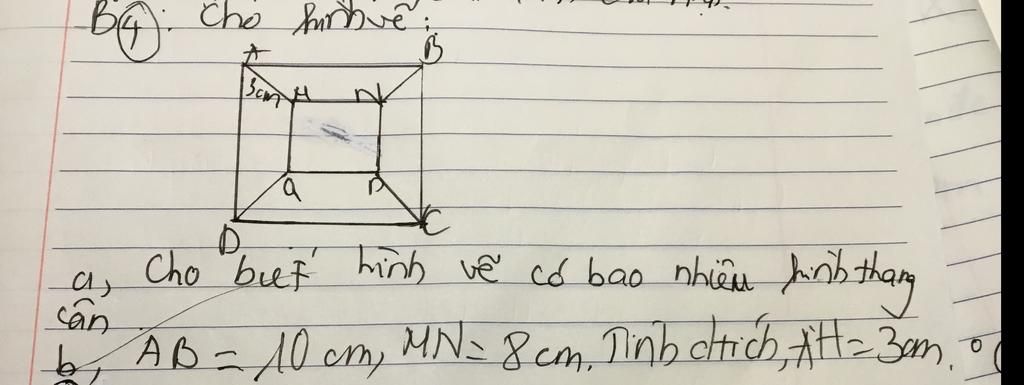 B④: Cho hình vẽ:
A B
3cm M N
Q P
D C
a, Cho biết hình vẽ có bao nhiêu hình thang
cân
b, AB = 10 cm, MN = 8 cm. Tính dtích, AH = 3cm.